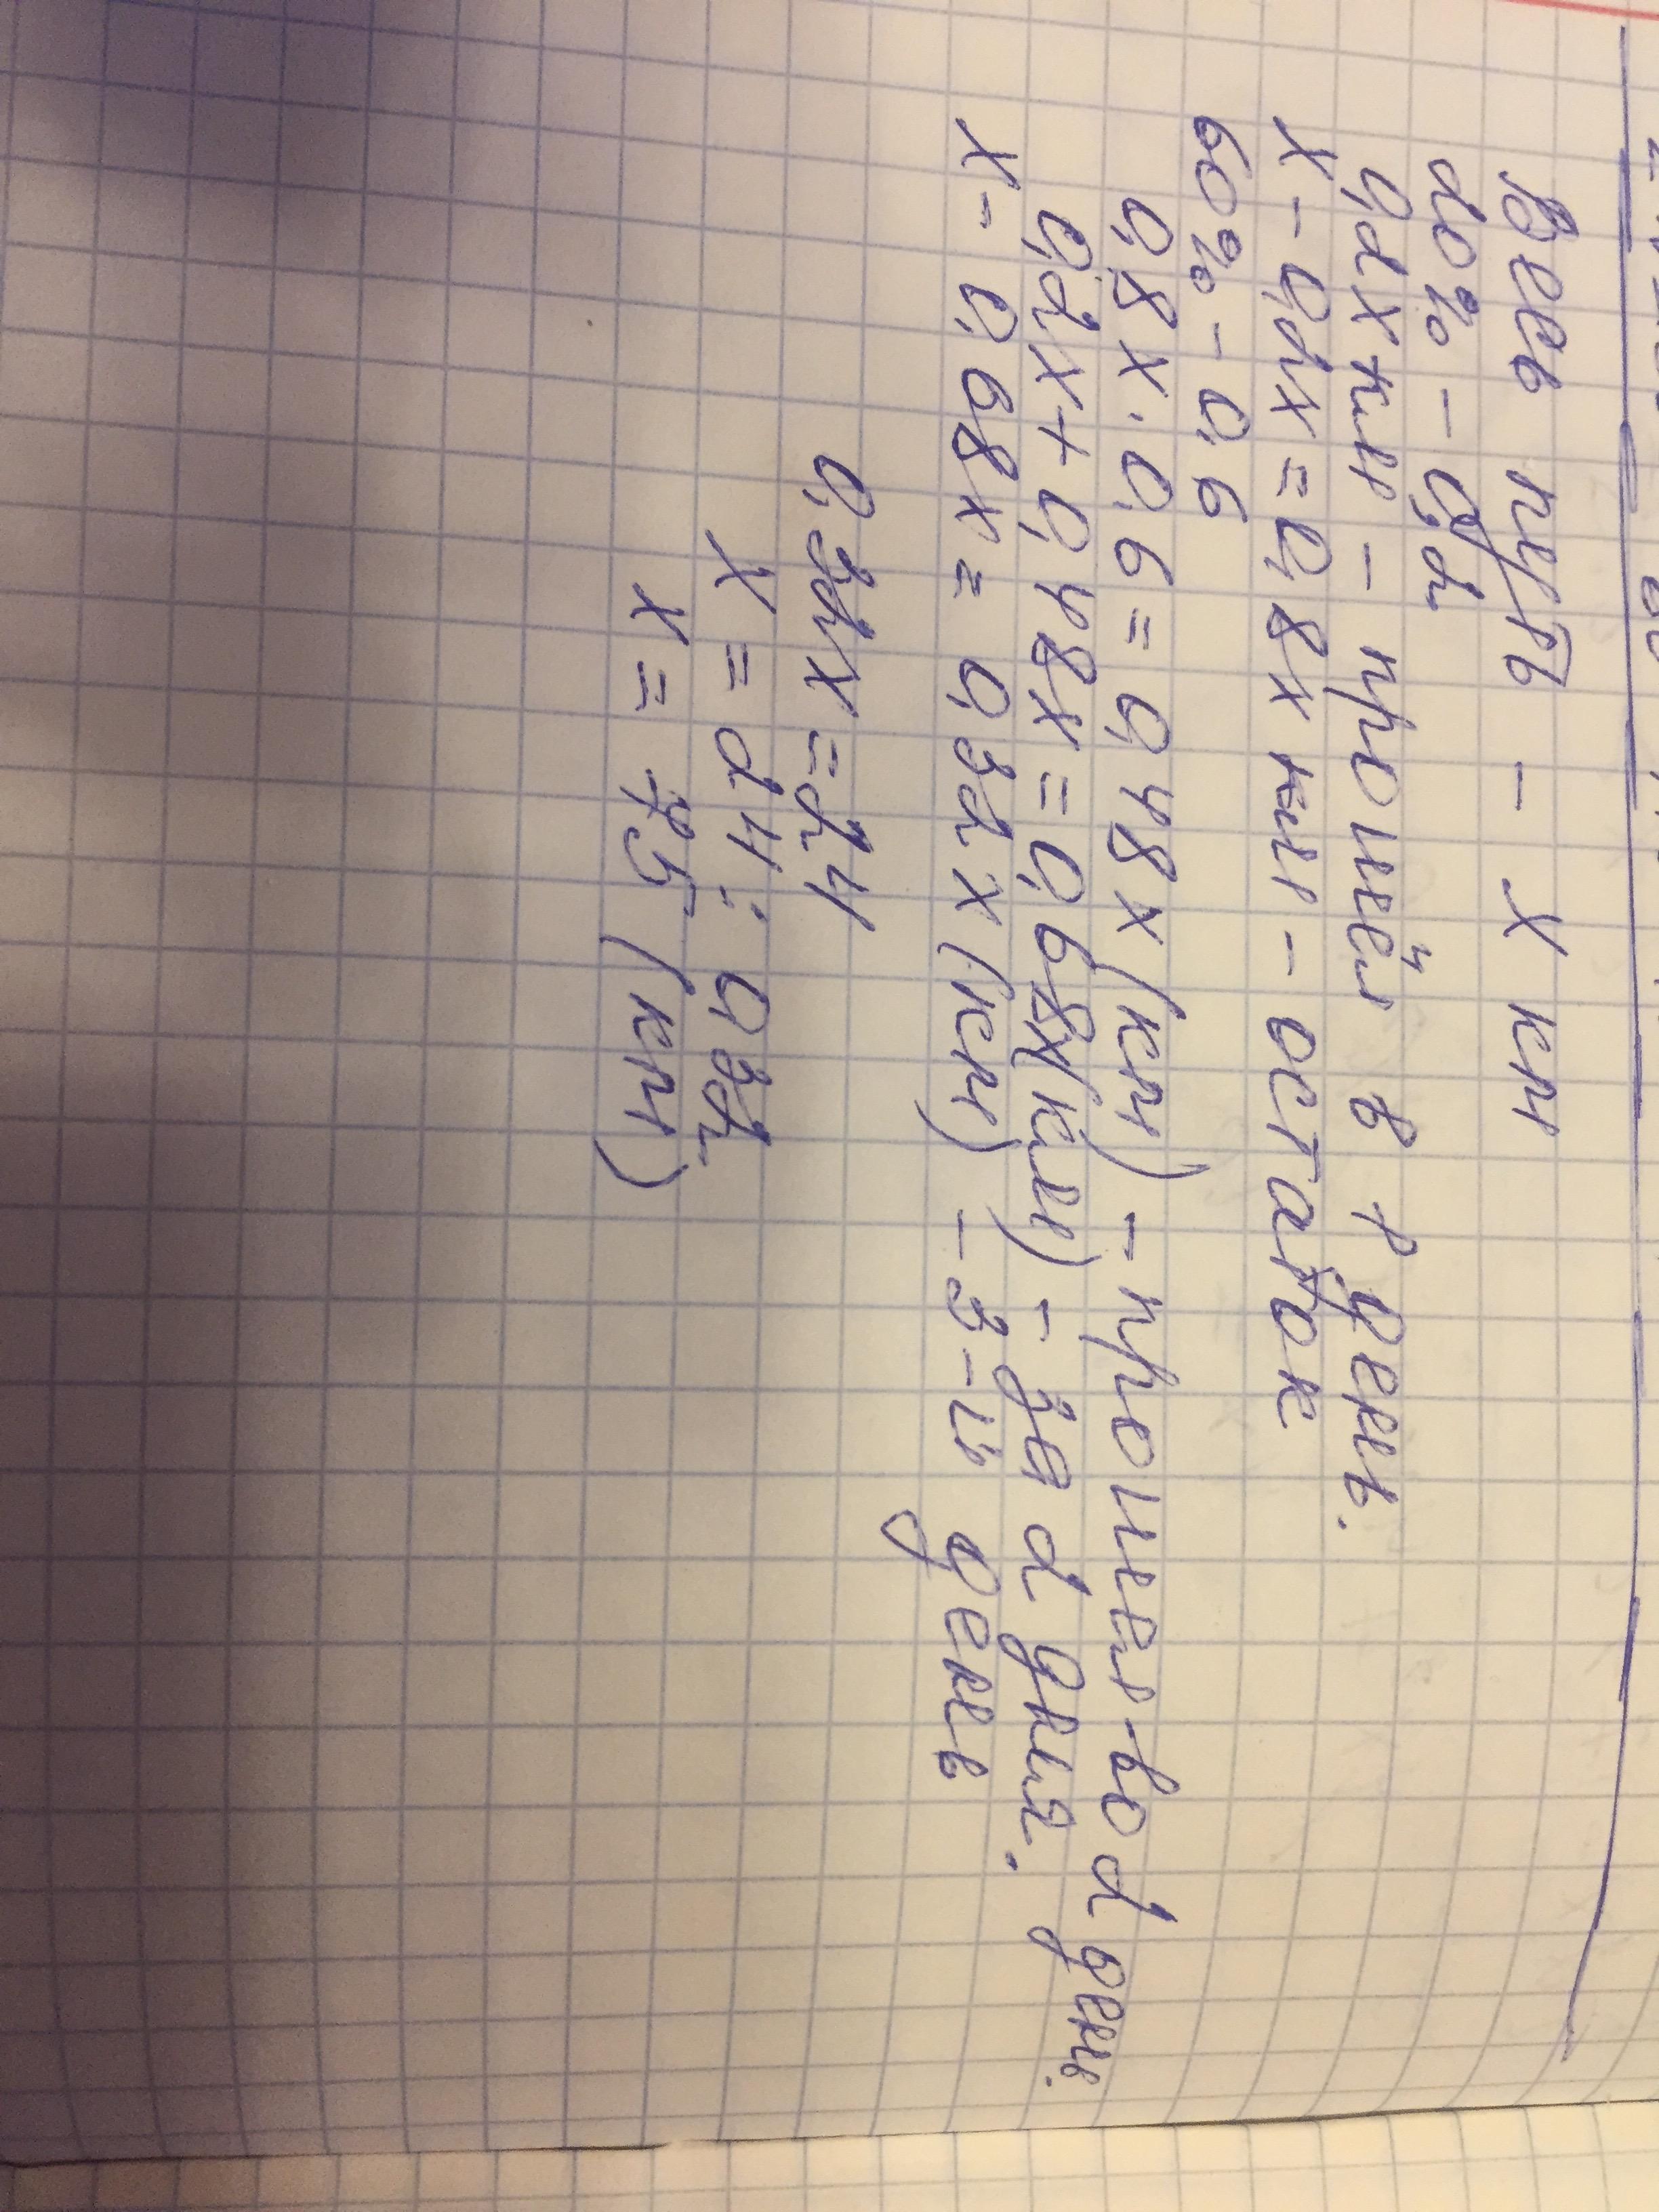 Весь путь – х км
20% – 0,2
0,2х км – прошёл в 1 день.
х – 0,2х = 0,8х км – остаток
60% – 0,6
0,8х · 0,6 = 0,48х (км) – прошел во 2 день.
0,2х + 0,48х = 0,68х (км) – за 2 дня.
х – 0,68х = 0,32х (км) – 3-й день
0,32х = 24
х = 24 : 0,32
х = 75 (км)